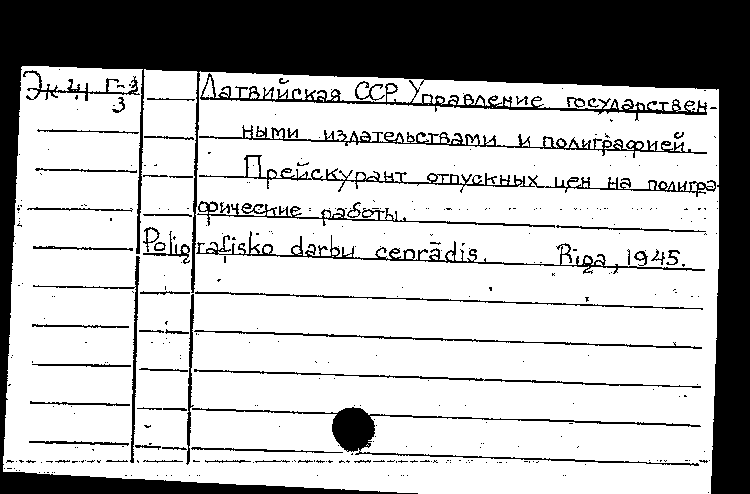 Эк 24 Г-3
3
Латвийская ССР. Управление государствен-
ными издательствами и полиграфией.
Прейскурант отпускных цен на полигра-
фические работы.
Poligrafisko darbu cenrādis. Rīga, 1945.